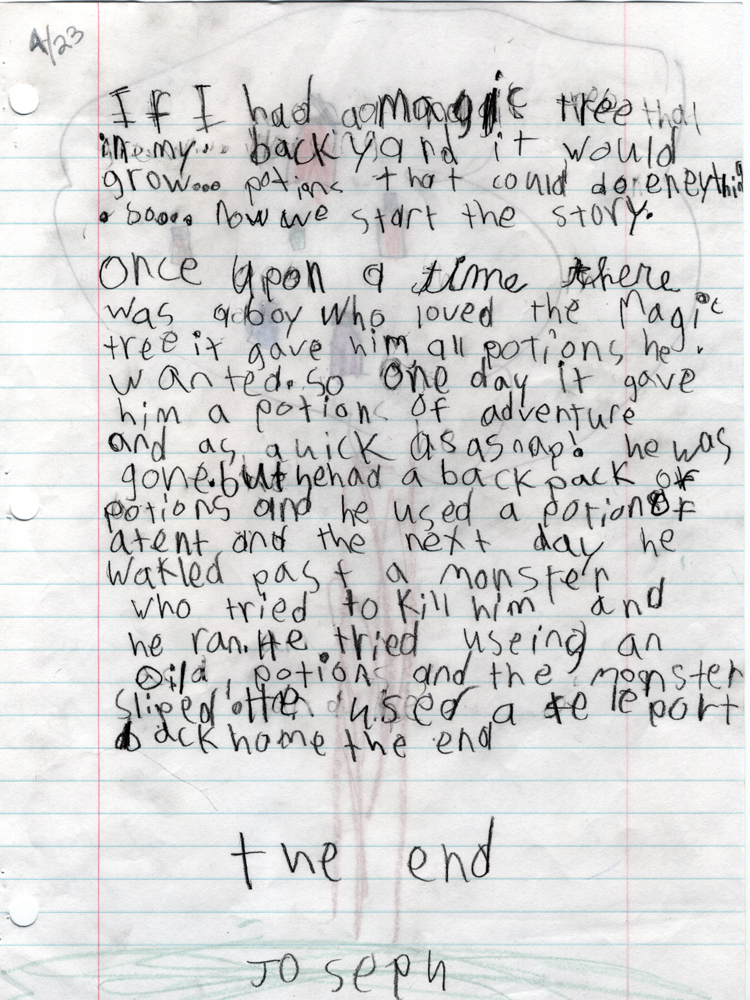 4/23
If I had a magic tree that
in my backyard it would
grow... potions that could do enything
. so.... now we start the story.
Once upon a time there
was a boy who loved the Magic
tree it gave him all potions he .
wanted. so one day it gave
him a potions of adventure
and as quick as a snap! he was
gone. but he had a back pack of
potions and he used a potion of
a tent and the next day he
wakled past a monster
who tried to kill him and
he ran. He tried useing an
potions and the monster
sliped he used a teleport
back home the end
the end
Joseph